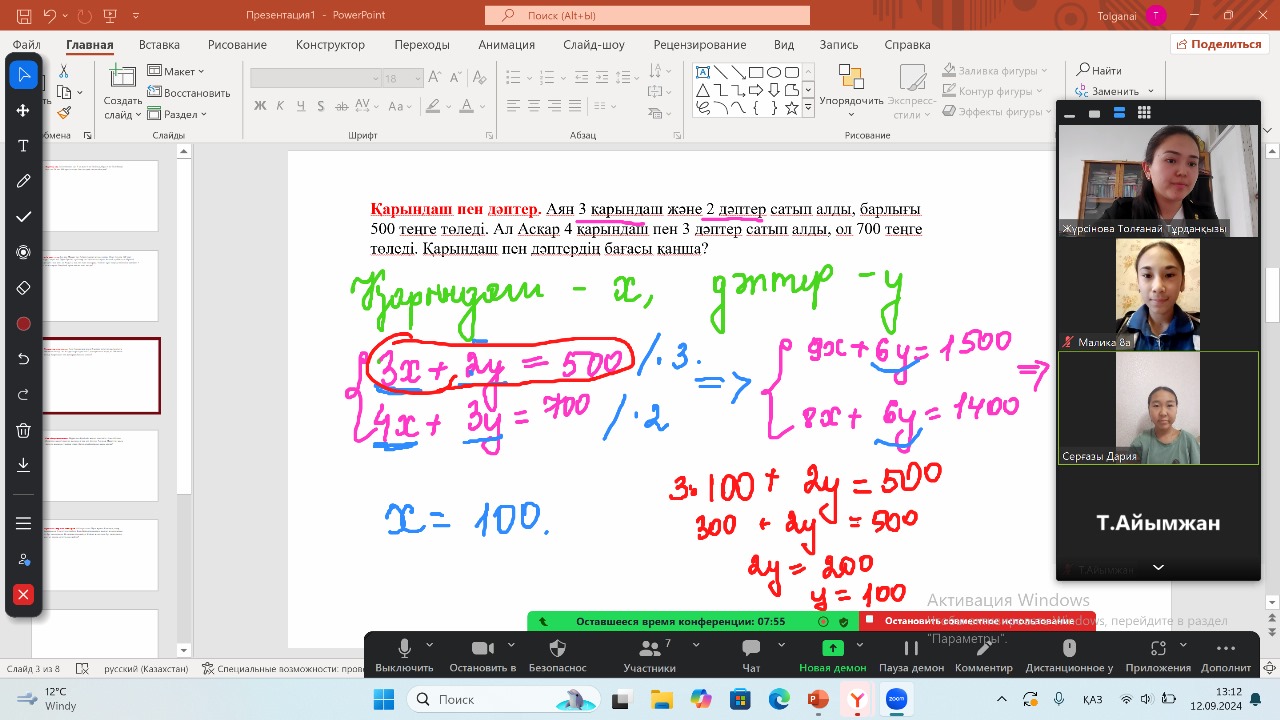 Презентация1 - PowerPoint
Поиск (Alt+Ы)
Tolganai
T
Файл Главная Вставка Рисование Конструктор Переходы Анимация Слайд-шоу Рецензирование Вид Запись Справка
Поделиться
Макет
Восстановить
Раздел
Создать слайд
Слайды
18
Ж К Ч S ab AV Aa
Шрифт
Абзац
Упорядочить
Экспресс-стили
Заливка фигуры
Контур фигуры
Эффекты фигуры
Рисование
Найти
Заменить
Қарындаш пен дәптер. Аян 3 қарындаш және 2 дәптер сатып алды, барлығы
500 теңге төледі. Ал Асқар 4 қарындаш пен 3 дәптер сатып алды, ол 700 теңге
төледі. Қарындаш пен дәптердің бағасы қанша?
Қарындаш - x, дәптер - y
3x + 2y = 500 /·3.
4x + 3y = 700 /·2
=>
9x + 6y = 1500
8x + 6y = 1400
=>
x = 100.
3·100 + 2y = 500
300 + 2y = 500
2y = 200
y = 100
Жүрсінова Толғанай Тұрданқызы
Малика 8а
Серғазы Дария
Т.Айымжан
Т.Айымжан
Активация Windows
перейдите в раздел
"Параметры".
Оставшееся время конференции: 07:55
Остановить
Выключить Остановить в Безопаснос Участники 7 Чат Новая демон Пауза демон Комментир Дистанционное у Приложения Дополнит
Слайд 3 из 8 русский (Казахстан) Специальные возможности:
12°C
Windy
Поиск
zoom
ҚАЗ
13:12
12.09.2024